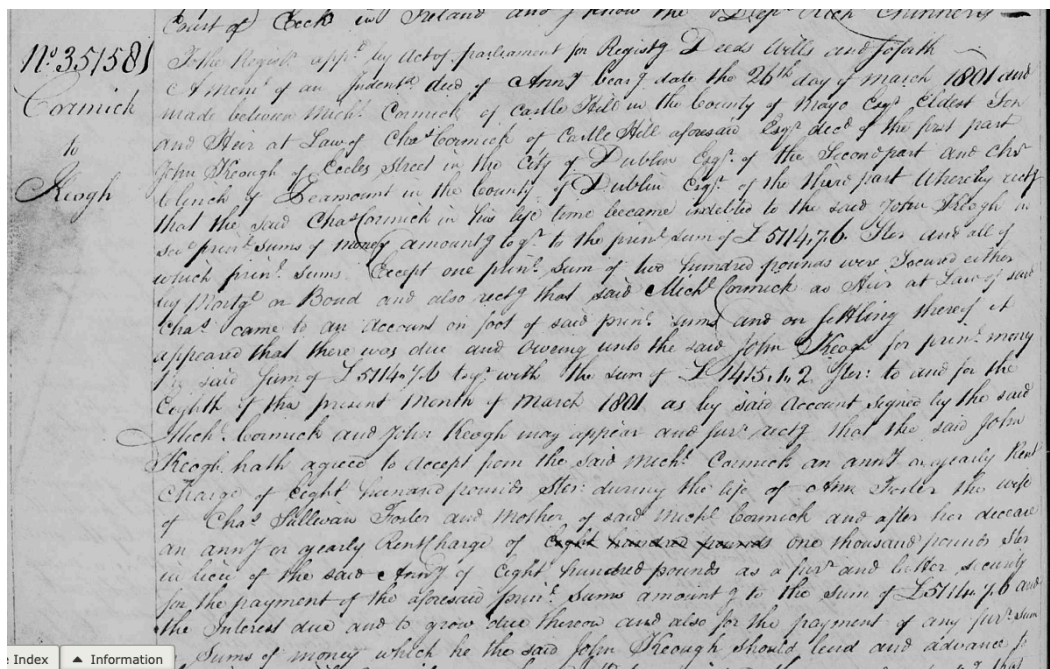 Court of Cork in Ireland and I know the Depᵗ Rich Chinnery
Nº 351581
Cormick
to
Keogh
John Regist appᵈ by Act of parliament for Registg Deeds Wills and soforth
A Memˡ of an Indentᵈ deed of Annʸ bearg date the 26ᵗʰ day of march 1801 and
made between Michˡ Cormick of Castle Hill in the County of Mayo Esqʳ Eldest Son
and Heir at Law of Chaˢ Cormick of Castle Hill aforesaid Esqʳ decᵈ of the first part
John Keough of Eccles Street in the City of Dublin Esqʳ of the Second part and Chˢ
Clinch of Seamount in the County of Dublin Esqʳ of the third part Whereby rectg
that the said Chaˢ Cormick in his life time became indebted to the said John Keogh in
sevˡ prinˡ sums of money amountg togʳ to the prinˡ sum of £5114.7.6 Ster and all of
which prinˡ sums Except one prinˡ Sum of two hundred pounds were Secured either
by Mortgᵉ or Bond and also rectg that said Michˡ Cormick as Heir at Law of said
Chaˢ came to an account on foot of said prinˡ sums and on settling thereof it
appeared that there was due and Oweing unto the said John Keogh for prinˡ mony
the said Sum of £5114.7.6 togʳ with the sum of £1415.1.2 Ster: to and for the
Eighth of the present Month of March 1801 as by said Account signed by the said
Michˡ Cormick and John Keogh may appear and furʳ rectg that the said John
Keogh hath agreed to accept from the said Michˡ Cormick an annʸ or yearly Rent
Charge of Eight hunared pounds Ster: during the life of Ann Foster the wife
of Chaˢ Sullivan Foster and Mother of said Michˡ Cormick and after her decease
an annʸ or yearly Rent Charge of Eight hundred pounds one thousand pounds Ster
in lieu of the said Annʸ of Eight hundred pounds as a furʳ and better security
for the payment of the aforesaid prinˡ Sums amountg to the Sum of £5114.7.6 and
the Interest due and to grow due thereon and also for the payment of any furʳ sum
Sums of money which he the said John Keough should lend and advance
Index
▲ Information